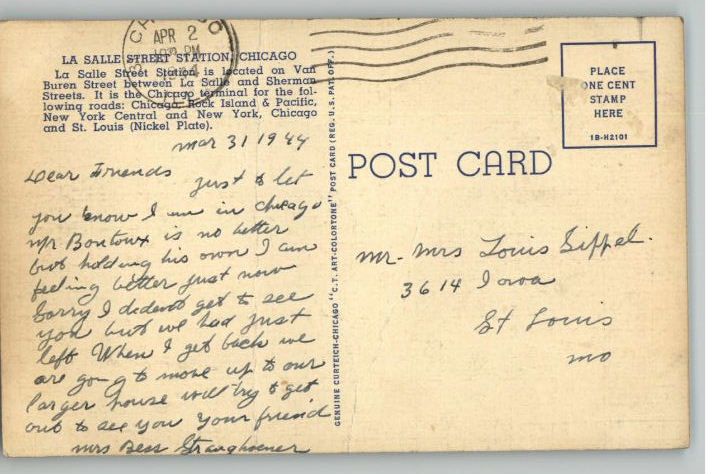 CHICAGO
APR 2
PM
LA SALLE STREET STATION, CHICAGO
La Salle Street Station is located on Van
Buren Street between La Salle and Sherman
Streets. It is the Chicago terminal for the fol-
lowing roads: Chicago, Rock Island & Pacific,
New York Central and New York, Chicago
and St. Louis (Nickel Plate).
Mar 31 1944
Dear Friends just to let
you know I am in Chicago
Mr Bontoux is no better
but holding his own I am
feeling better just now
Sorry I dident get to see
you but we had just
left When I get back we
are going to move up to our
larger house will try to get
out to see you your friend
Mrs Bess
GENUINE CURTEICH-CHICAGO "C.T. ART-COLORTONE" POST CARD (REG. U.S. PAT. OFF.)
PLACE
ONE CENT
STAMP
HERE
1B-H2101
POST CARD
Mr. Mrs Louis Sippel.
3614 Iowa
St Louis
Mo